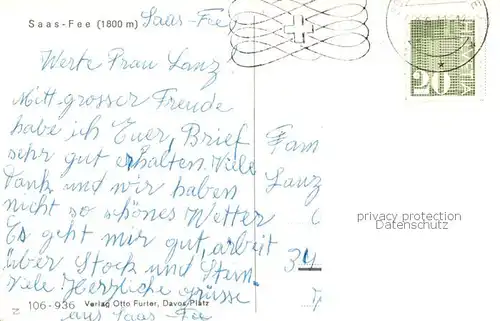 Saas-Fee (1800 m) Saas-Fee
Werte Frau Lanz
Mitt grosser Freude
habe ich Euer, Brief
sehr gut erhalten. Viele
Dank und wir haben
nicht so schönes Wetter
Es geht mir gut, arbeit
über Stock und Stein.
Viele Herzliche grüsse
aus Saas-Fee
Fam
Lanz
34
HELVETIA
20
privacy protection
Datenschutz
106-936 Verlag Otto Furter, Davos-Platz